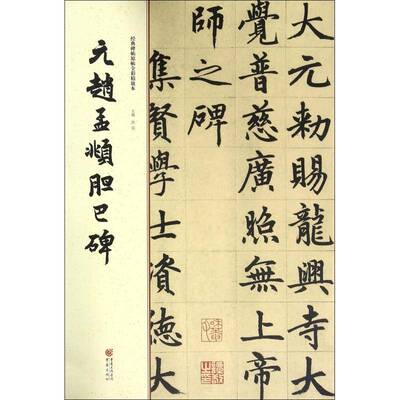 经典碑帖原帖全彩精放本
元趙孟頫胆巴碑
大元勅賜龍興寺大
覺普慈廣照無上帝
師之碑
集賢學士資德大